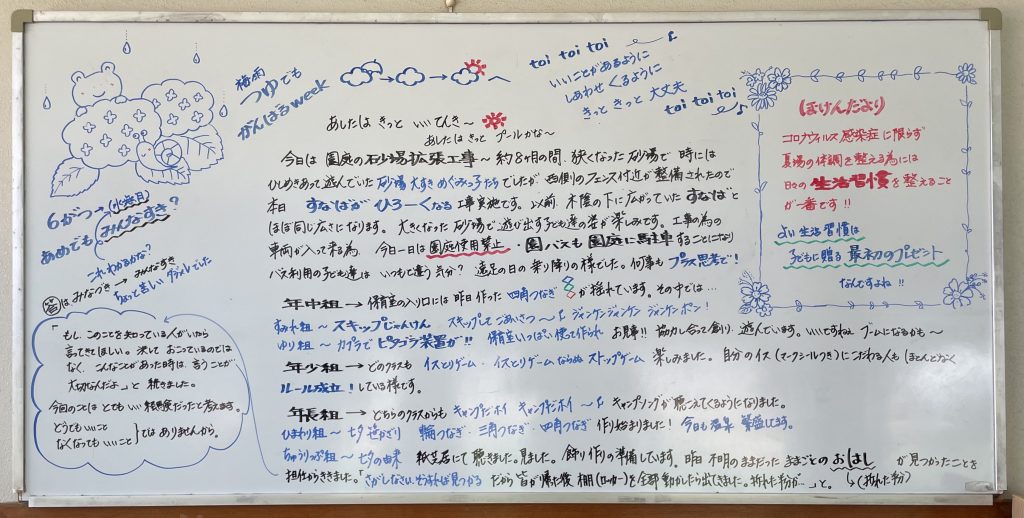 梅雨
つゆでも
がんばるweek
toi toi toi
いいことがあるように
しあわせ くるように
きっと きっと 大丈夫
toi toi toi
6がつ→(水無月)
あめでも みんなすき?
これわかるかな?
答はみなづき→みんなすき
ちょっと苦しいダジャレでした
あしたは きっと いいてんき〜
あしたは きっと プールかな〜
今日は 園庭の砂場拡張工事〜約8ヶ月の間、狭くなった砂場で 時には
ひしめきあって遊んでいた 砂場大すきめぐみっ子たちでしたが 西側のフェンス付近が整備されたので
本日 すなばが ひろーくなる 工事実施です。以前、木陰の下に広がっていた すなばと
ほぼ同じ広さになります。大きくなった砂場で遊び出す子ども達の姿が楽しみです。工事の為の
車両が入って来る為 今日一日は園庭使用禁止・園バスも園庭に駐車することになり
バス利用の子ども達は いつもと違う気分? 遠足の日の乗り降りの様でした。何事もプラス思考で!
年中組→保育室の入り口には 昨日作った 四角つなぎ が揺れています。その中では…
すみれ組〜スキップじゃんけん スキップして ごあいさつ〜♪ ジャンケンジャンケン ジャンケンポン!
ゆり組〜カプラでピタゴラ装置が!! 保育室いっぱい使って作られ お見事!! 協力し合って創り・遊んでいます。いいですねぇ ブームになるかも〜
年少組→どのクラスも イスとりゲーム・イスとりゲームならぬストップゲーム 楽しみました。自分のイス(マークシールつき)にこだわる人も(ほとんど)なく
ルール成立!している様です。
年長組→どちらのクラスからも キャンプだホイ キャンプだホイ〜♪ キャンプソングが聴こえてくるようになりました。
ひまわり組〜七夕笹かざり 輪つなぎ・三角つなぎ・四角つなぎ 作り始まりました! 今日も 繁盛してます。
ちゅうりっぷ組〜七夕の由来 紙芝居にて聴きました。見ました。飾り作りの準備しています。昨日 不明のままだった ままごとのおはし が見つかったことを
(折れた半分)
担任からききました。「さがしなさい、そうすれば見つかる」だから 皆が帰った後 棚(ロッカー)を全部動かしたら出てきました。折れた半分が…」と。
「もし、このことを知っている人がいたら
言ってきてほしい。決して おこっているのでは
なく、こんなことがあった時は、言うことが
大切なんだよ」と 続きました。
今回のことは とても いい経験だったと考えます。
どうでもいいこと
なくなってもいいこと
ではありませんから。
ほけんだより
コロナウィルス感染症に限らず
夏場の体調を整える為には
日々の生活習慣を整えること
が一番です!!
よい生活習慣は
子どもに贈る 最初のプレゼント
なんですよね!!